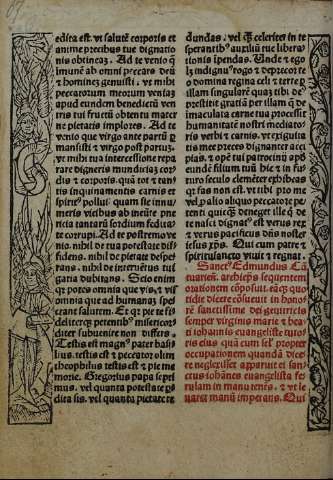 edita est. vt salutē corporis et
anime precibus tue dignatio
nis obtineā. Ad te venio q̄
immunē ab omni peccato deū
et hominē genuisti. vt mihi
peccatorum meorum veniam
apud eundem benedictū ven
tris tui fructū obtentu mater
ne pietatis implores. Ad te
venio que virgo ante partū p̄
mansisti et virgo post partū.
vt mihi tua intercessione repa
rare digneris mundiciā cor
dis et corporis. quā tot et tan
tis inquinamentis carnis et
spiritꝰ pollui. quam sic innu
meris vicibus ab ineūte pue
ricia tantarū sordium feditate
corrupi. Ad te postremo ve
nio. nihil de tua potestate dif
fidens. nihil de pietate despe
rans. nihil de internētus tui
gratia dubitans. Scio enim
qꝛ potes omnia que vis. et vis
omnia que ad humanā spectant
salutem. Et qꝛ pie te fi
deliterqꝫ petentibꝰ misericor
diter subuenire non differs.
Testis est magnꝰ pater basi
lius. testis est et peccator olim
theophilus testis est et pie me
morie. Gregorius papa septi
mus. vel quanta potestate p̄
dita sis. vel quanta pietate et
dundas. vel qꝫ celeriter in te
sperantibꝰ auxiliū tue libera
tionis īpendas. Unde et ego
lꝫ indignꝰ rogo et deprecor te
o domina regina celi et terre p
illam singularē quaꝫ tibi de⁹
prestitit gratiā per illam q̄ de
immaculata carne tua processit
humanitatē nostri mediatoris
verbi et carnis. vt exiguita
tis mee preces dignanter acci
pias. et opē tui patrocinij apd
eundē filium tuū hic et in fu
turo seculo clemēter exhibeas
qꝛ fas non est. vt tibi pro me
vel palio aliquo peccatore pe
tenti quicqꝫ deneget ille q̄ de
te nasci dignatꝰ est verus rex
et verus pacificus dn̄s noster
iesus xp̄s. Qui cum patre et
spiritusancto viuit et regnat.
Sanctꝰ Edmundus Cā
tuarien. archiep̄s sequentem
orationem cōposuit. eāqꝫ quo
tidie dicere cōsueuit in hono
rē sanctissime dei genitricis
semper virginis marie et be
ati iohannis euangeliste tuto
ris eius quā cum sel' propter
occupationem quandā dice
re neglexisset apparuit ei san
ctus iohānes euangelista fe
rulam in manu tenēs. et vt le
uaret manū imperans. Qui